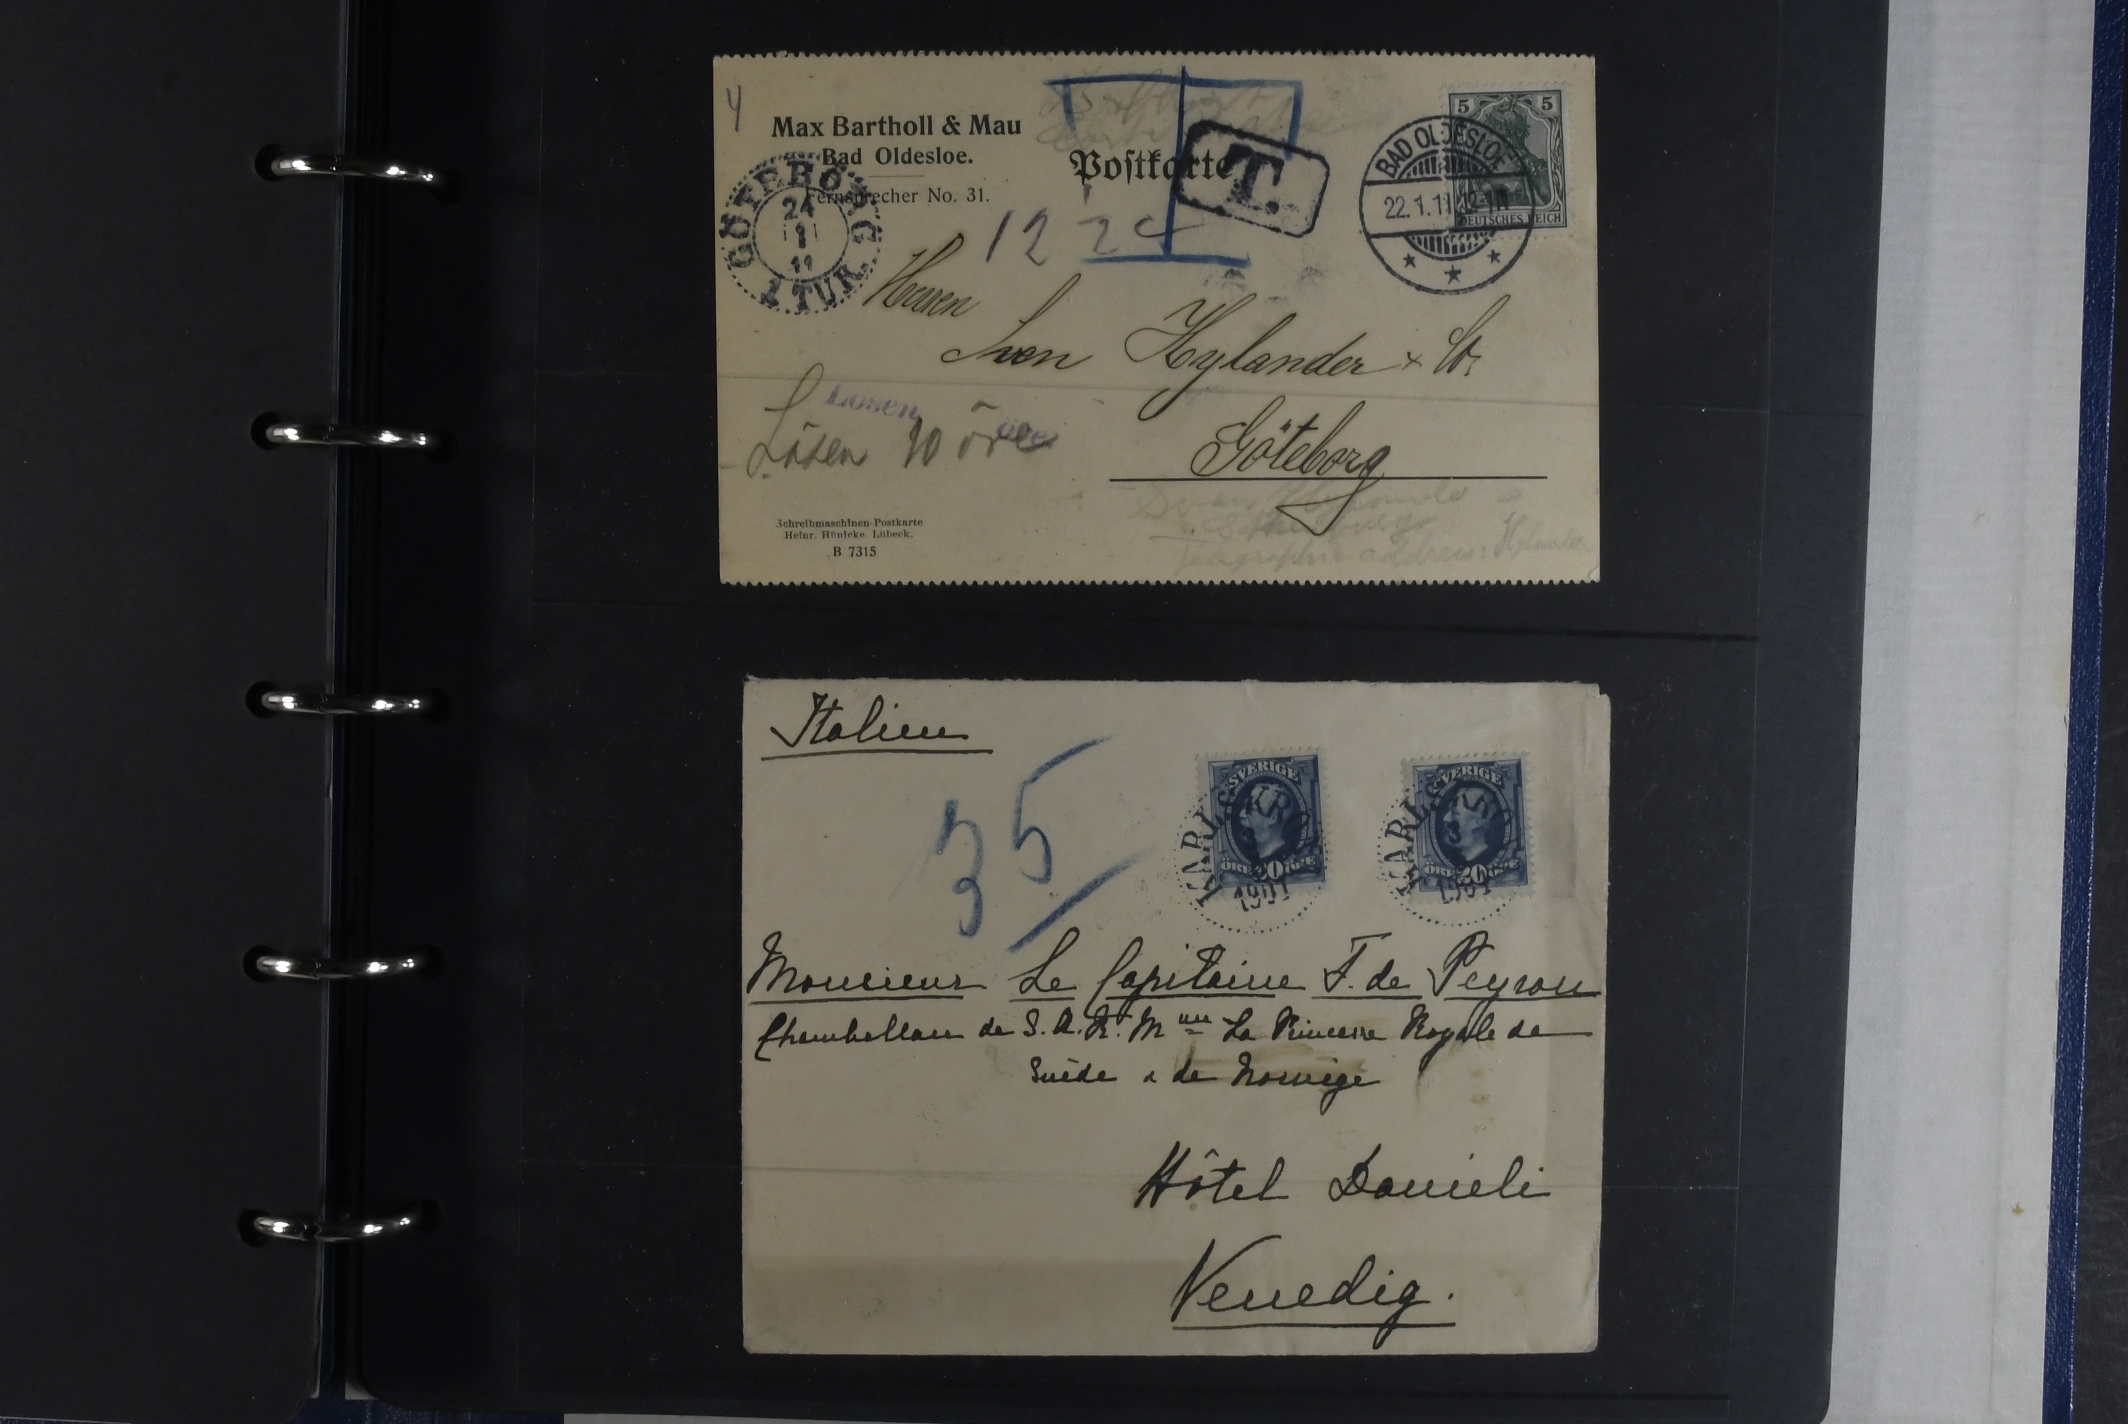 4
Max Bartholl & Mau
Bad Oldesloe.
Fernsprecher No. 31.
Postkarte
T.
5 5
DEUTSCHES REICH
BAD OLDESLOE
22.1.11
GÖTEBORG
24
1
11
1 TUR.
12
Herren
Sven Hylander & Co.
Göteborg
Lösen öre
Lösen 10 öre
Schreibmaschinen-Postkarte
Heinr. Hünicke. Lübeck.
B 7315
Italien
35
SVERIGE
ÖRE 20 ÖRE
KARLSKRO
1901
SVERIGE
ÖRE 20 ÖRE
KARLSKRO
3
1901
Monsieur Le Capitaine F. de Peyron
Chambellan de S. A. R. Mme La Princesse Royale de
Suède & de Norvège
Hôtel Danieli
Venedig.